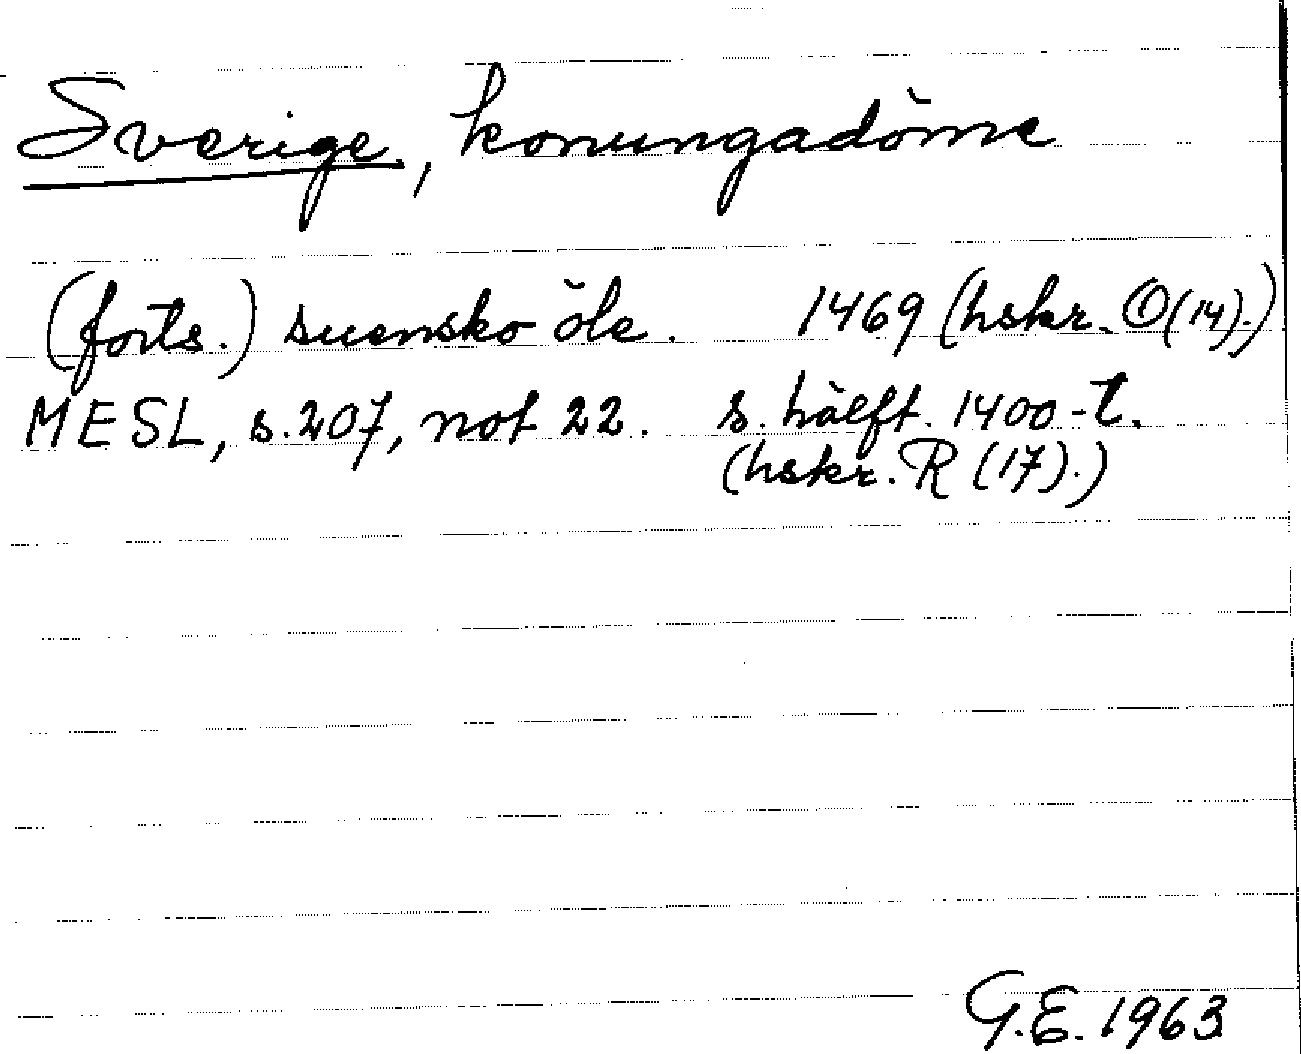 Sverige, konungadöme
(forts.) suensko öle. 1469 (hskr. O(14).)
MESL, s. 207, not 22. s. hälft. 1400-t.
(hskr. R (17).)
G.E. 1963